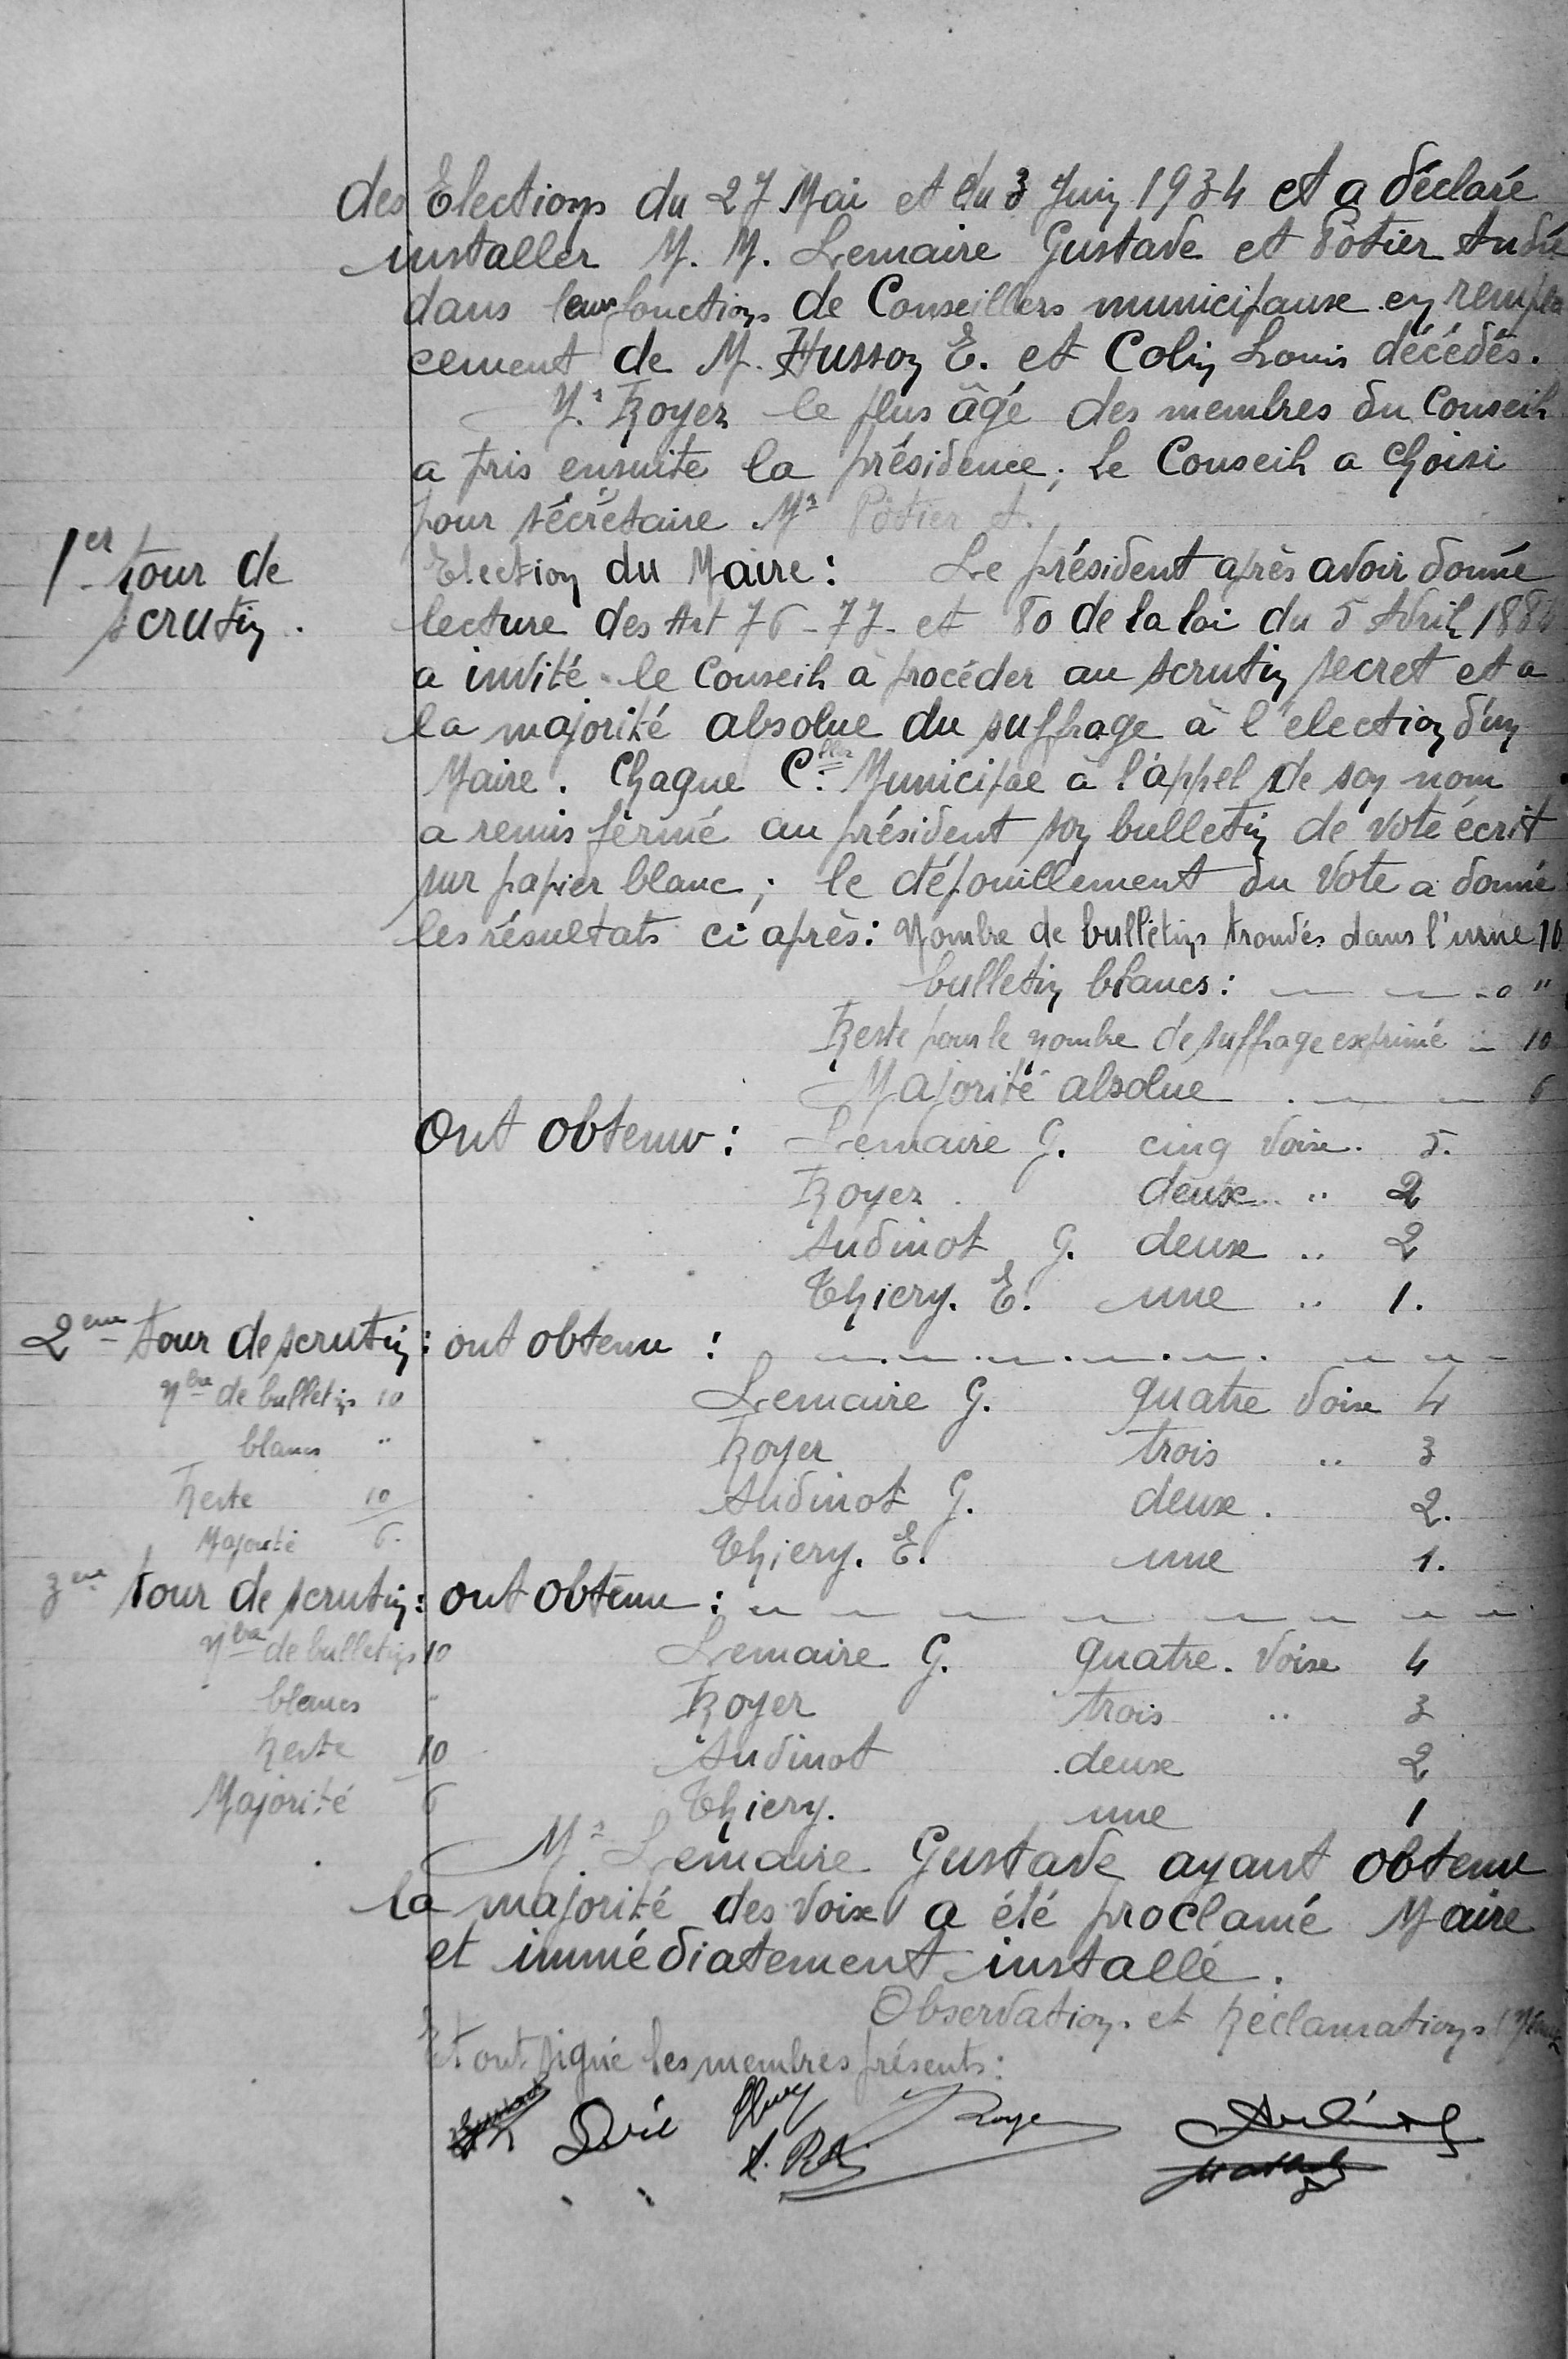 des Elections du 27 Mai et du 3 Juin 1934 et a déclaré
installer M. M. Lemaire Gustave et Potier André
dans leurs fonctions de Conseillers municipaux en rempla
cement de M. Husson E. et Colin Louis décédés.
Mr Royer le plus âgé des membres du Conseil
a pris ensuite la présidence ; Le Conseil a choisi
pour sécrétaire Mr Potier A.
1er tour de
scrutin.
Election du Maire : Le président après avoir donné
lecture des Art 76 - 77 - et 80 de la loi du 5 Avril 1884
a invité le Conseil à procéder au scrutin secret et a
la majorité absolue du suffrage à l'élection d'un
Maire. Chaque Cller Municipal à l'appel de son nom
a remis fermé au président son bulletin de vote écrit
sur papier blanc ; le dépouillement du Vote a donné
les résultats ci après : Nombre de bulletins trouvés dans l'urne 10
bulletin blancs : — — - o "
Reste pour le nombre de suffrage exprimé — 10
Majorité absolue . — — 6
Ont obtenu : Lemaire G. cinq voix. 5.
Royer . deux .. " 2
Audinot G. deux " 2
Thiery. E. une " 1.
2eme tour de scrutin : ont obtenu :
Nbre de bulletins 10
blancs "
Reste 10
Majorité 6.
Lemaire G. quatre voix 4
Royer trois " 3
Audinot G. deux . 2.
Thiery. E. une 1.
3me tour de scrutin : ont obtenu :
Nbre de bulletins 10
blancs "
Reste 10
Majorité 6
Lemaire G. quatre. voix 4
Royer trois " 3
Audinot deux 2
Thiery. une 1
Mr Lemaire Gustave ayant obtenu
la majorité des voix a été proclamé Maire
et immédiatement installé.
Observation. et Réclamations
Et ont signé les membres présents :
Royer